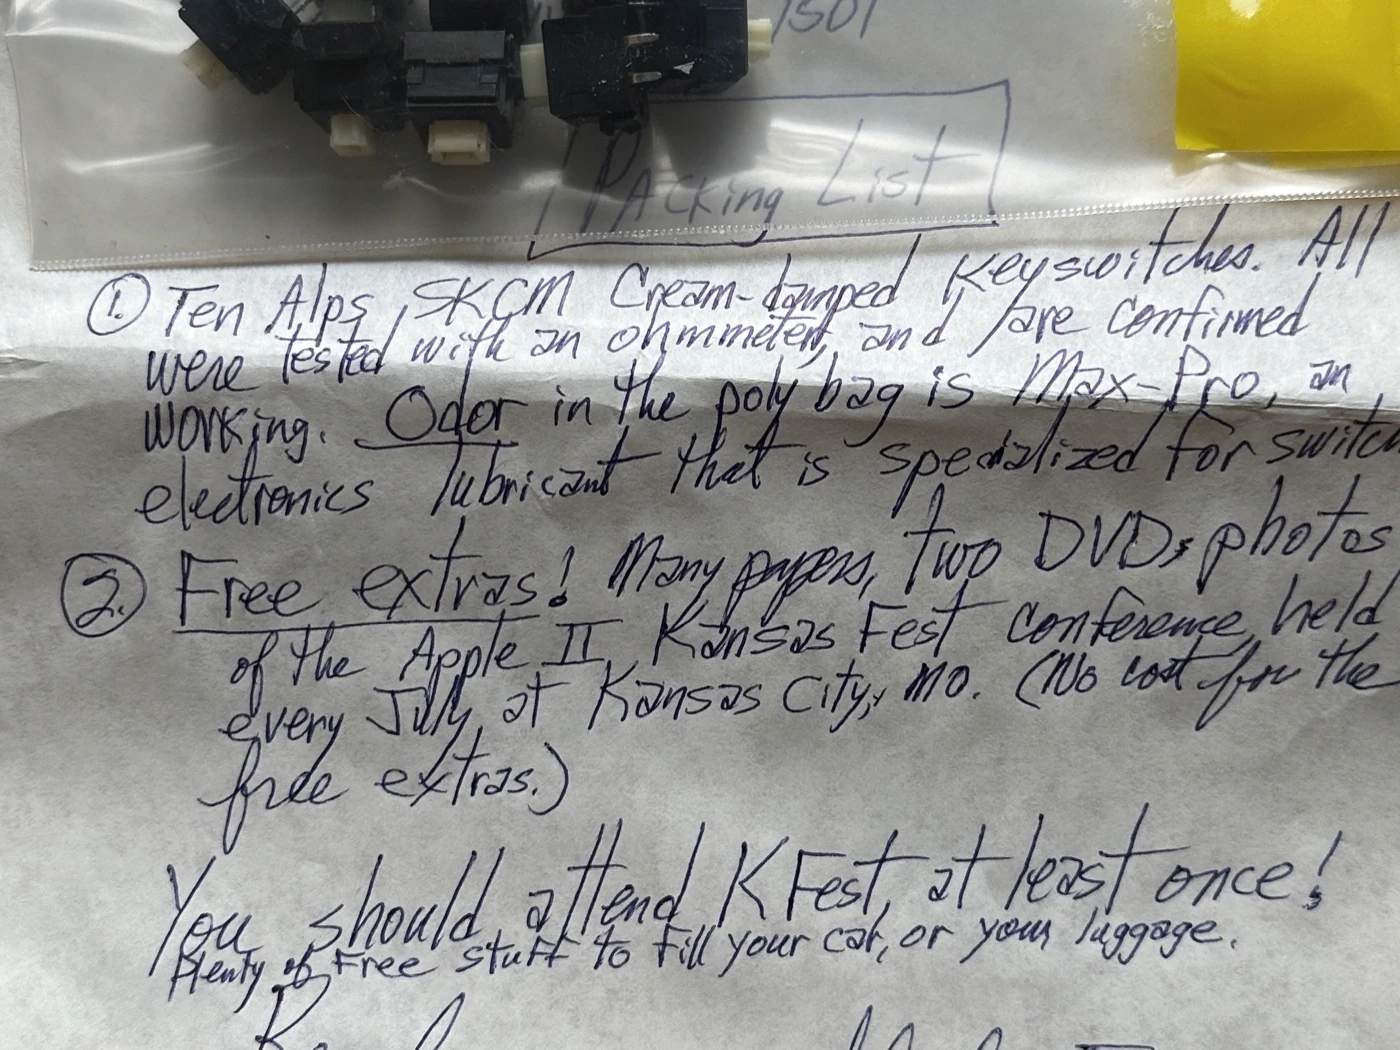 Packing List
1. Ten Alps SKCM Cream-damped Keyswitches. All
were tested with an ohmmeter, and are confirmed
working. Odor in the poly bag is Max-Pro, an
electronics lubricant that is specialized for switch
2. Free extras! Many papers, two DVDs, photos
of the Apple II Kansas Fest conference held
every July at Kansas City, Mo. (No cost for the
free extras.)
You should attend KFest, at least once!
Plenty of Free stuff to fill your car, or your luggage.